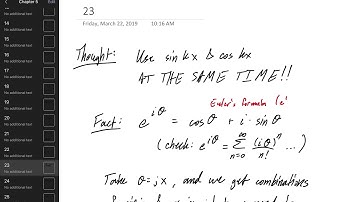 Chapter 6
Edit
No additional text
14
No additional text
15
No additional text
16
No additional text
17
No additional text
18
No additional text
19
No additional text
20
No additional text
21
No additional text
22
No additional text
23
No additional text
24
No additional text
25
23
Friday, March 22, 2019 10:16 AM
Thought: Use sin kx & cos kx
AT THE SAME TIME!!
Euler's formula (e^i
Fact: e^{iθ} = cos θ + i · sin θ
(check: e^{iθ} = ∑_{n=0}^{∞} (iθ)^n / n! ...)
Take θ = jx, and we get combinations